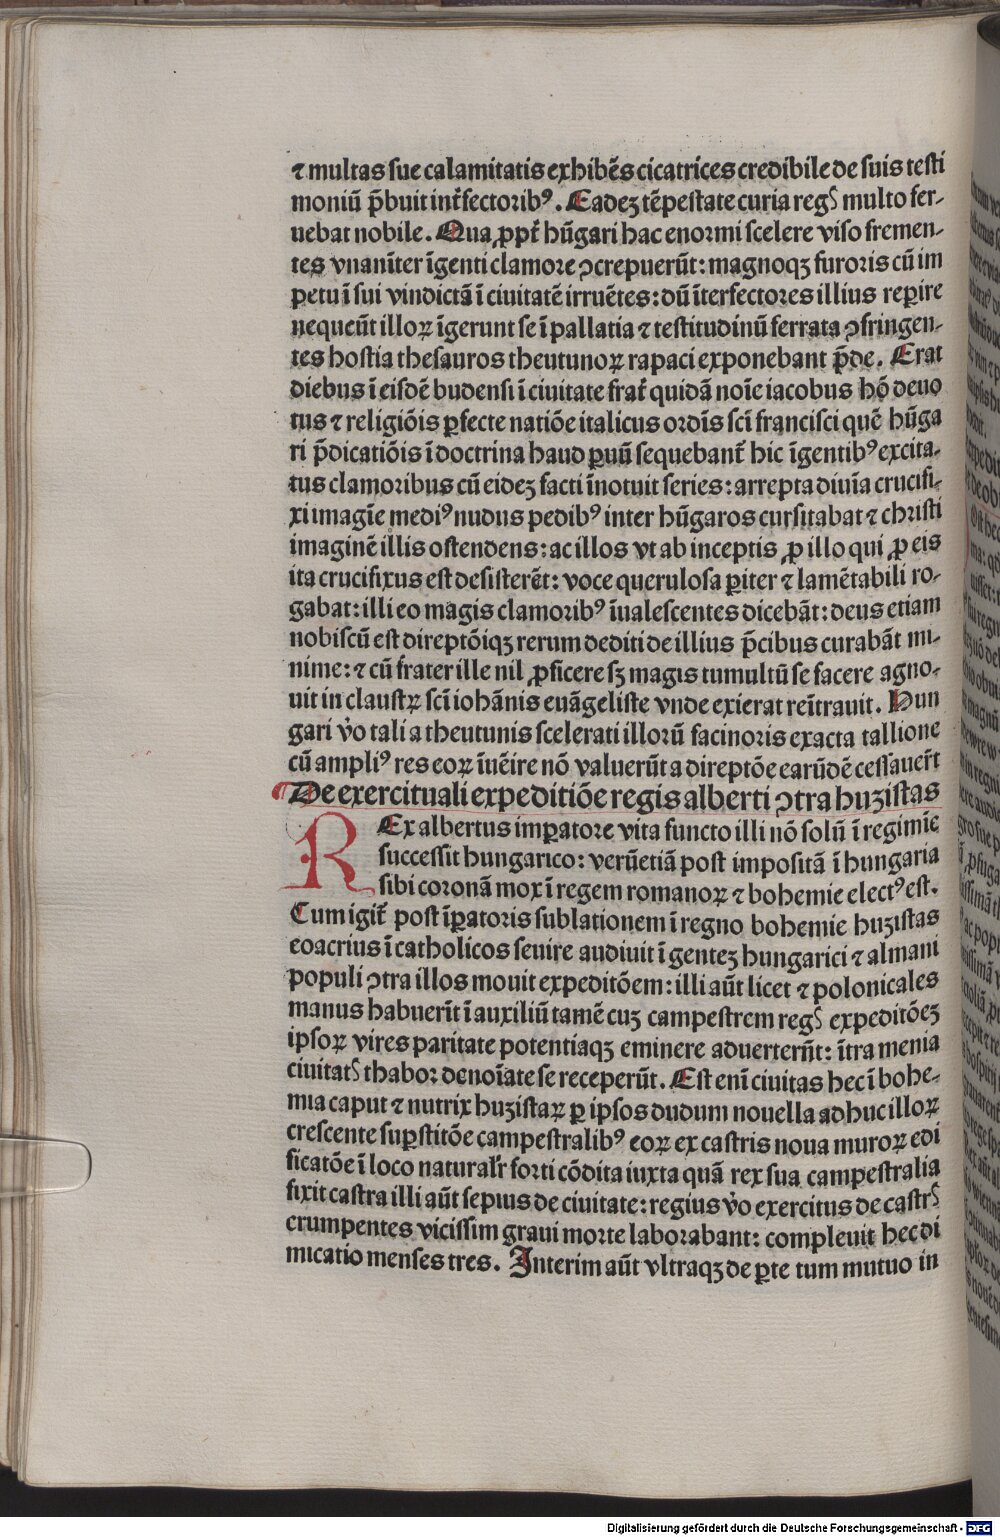 ⁊ multas sue calamitatis exhibēs cicatrices credibile de suis testi
moniū p̄buit int̄fectoribꝰ. Eadeꝫ tēpestate curia regꝭ multo fer-
uebat nobile. Qua ꝓpt̄ hūgari hac enormi scelere viso fremen-
tes vnanīter īgenti clamore ꝯcrepuerūt: magnoqꝫ furoris cū im
petu ī sui vindictā ī ciuitatē irruētes: dū īterfectores illius reꝑire
nequeūt illoꝝ īgerunt se ī pallatia ⁊ testitudinū ferrata ꝯfringen-
tes hostia thesauros theutunoꝝ rapaci exponebant p̄de. Erat
diebus ī eisdē budensi ī ciuitate frat̄ quidā noīe iacobus hō deuo
tus ⁊ religiōis ꝑfecte natiōe italicus ordīs scī francisci quē hūga
ri p̄dicatiōis ī doctrina haud ꝑuū sequebant̄ hic īgentibꝰ excita-
tus clamoribus cū eideꝫ facti īnotuit series: arrepta diuīa crucifi-
xi imagīe mediꝰ nudus pedibꝰ inter hūgaros cursitabat ⁊ christi
imaginē illis ostendens: ac illos vt ab inceptis ꝓ illo qui ꝓ eis
ita crucifixus est desisterēt: voce querulosa ꝑiter ⁊ lamētabili ro-
gabat: illi eo magis clamoribꝰ īualescentes dicebāt: deus etiam
nobiscū est direptōiqꝫ rerum dediti de illius p̄cibus curabāt mi-
nime: ⁊ cū frater ille nil ꝓficere sꝫ magis tumultū se facere agno-
uit in claustꝝ scī iohānis euāgeliste vnde exierat reītrauit. Hun
gari v̓o tali a theutunis scelerati illorū facinoris exacta tallione
cū ampliꝰ res eoꝝ īuēire nō valuerūt a direptōe earūdē cessauer̄t
De exercituali expeditiōe regis alberti ꝯtra huzistas
REx albertus imꝑatore vita functo illi nō solū ī regimīe
successit hungarico: verūetiā post impositā ī hungaria
sibi coronā mox ī regem romanoꝝ ⁊ bohemie electꝰ est.
Cum igit̄ post īꝑatoris sublationem ī regno bohemie huzistas
eoacrius ī catholicos seuire audiuit īgenteꝫ hungarici ⁊ almani
populi ꝯtra illos mouit expeditōem: illi aūt licet ⁊ polonicales
manus habuerīt ī auxiliū tamē cuꝫ campestrem regꝭ expeditōeꝫ
ipsoꝝ vires paritate potentiaqꝫ eminere aduerterūt: ītra menia
ciuitatꝭ thabor denoīate se receperūt. Est enī ciuitas hec ī bohe-
mia caput ⁊ nutrix huzistaꝝ ꝑ ipsos dudum nouella adhuc illoꝝ
crescente suꝑstitōe campestralibꝰ eoꝝ ex castris noua muroꝝ edi
ficatōe ī loco naturalr̄ forti cōdita iuxta quā rex sua campestralia
fixit castra illi aūt sepius de ciuitate: regius v̓o exercitus de castrꝭ
erumpentes vicissim graui morte laborabant: compleuit hec di
micatio menses tres. Interim aūt vltraqꝫ de ꝑte tum mutuo in
Digitalisierung gefördert durch die Deutsche Forschungsgemeinschaft - DFG